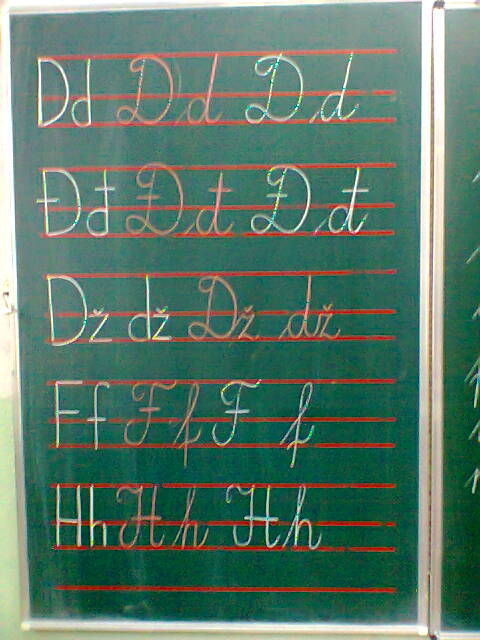 Dd Dd Dd
Đđ Đđ Đđ
Dž dž Dž dž
Ff Ff F f
Hh Hh Hh